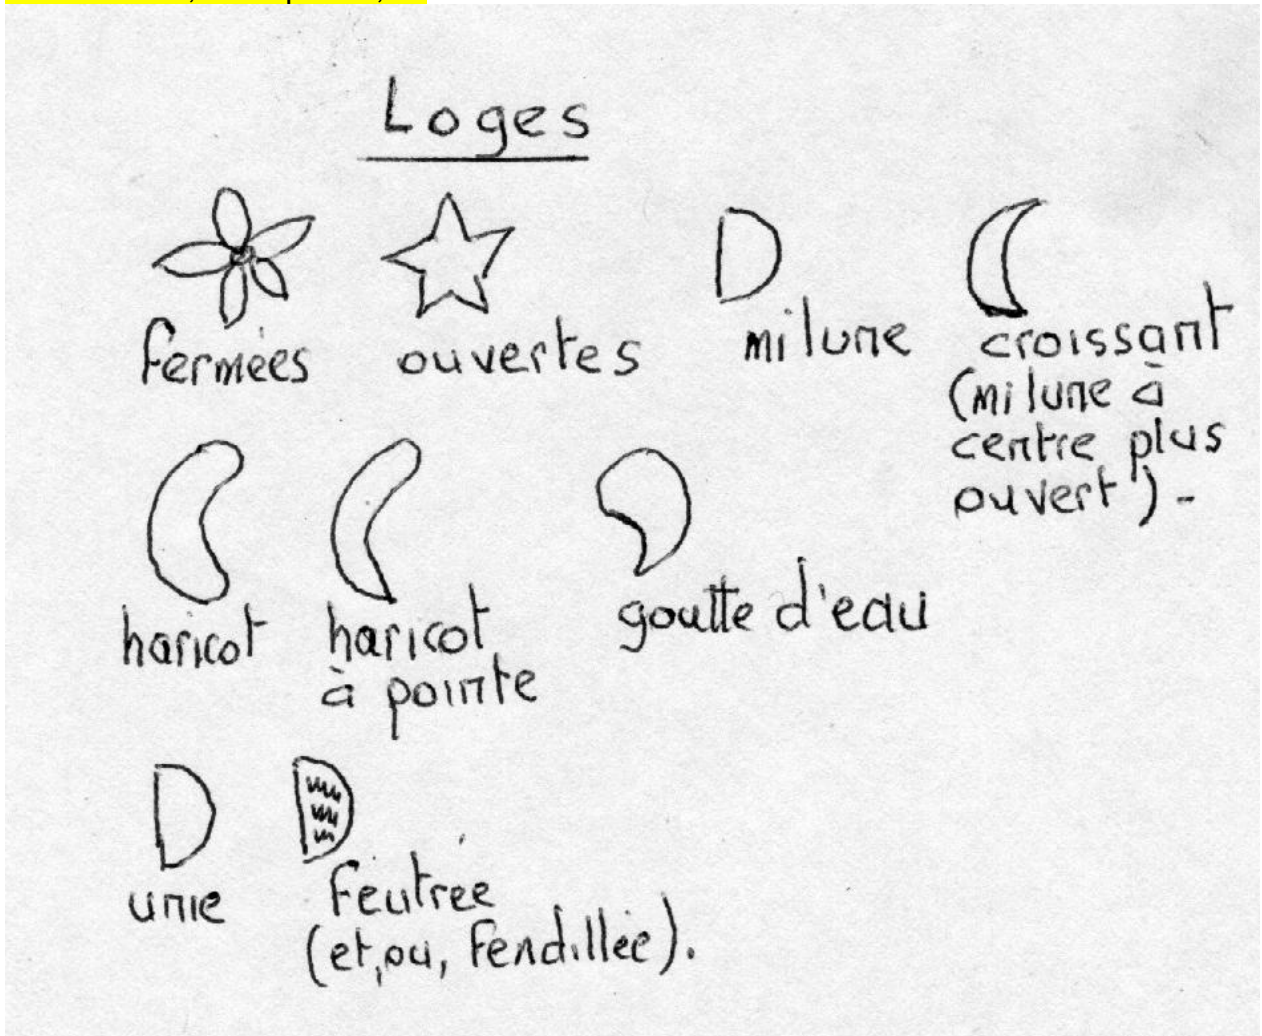 Loges
fermées ouvertes mi lune croissant
(mi lune à
centre plus
ouvert) -
haricot haricot
à pointe
goutte d'eau
unie feutrée
(et, ou, fendillée).